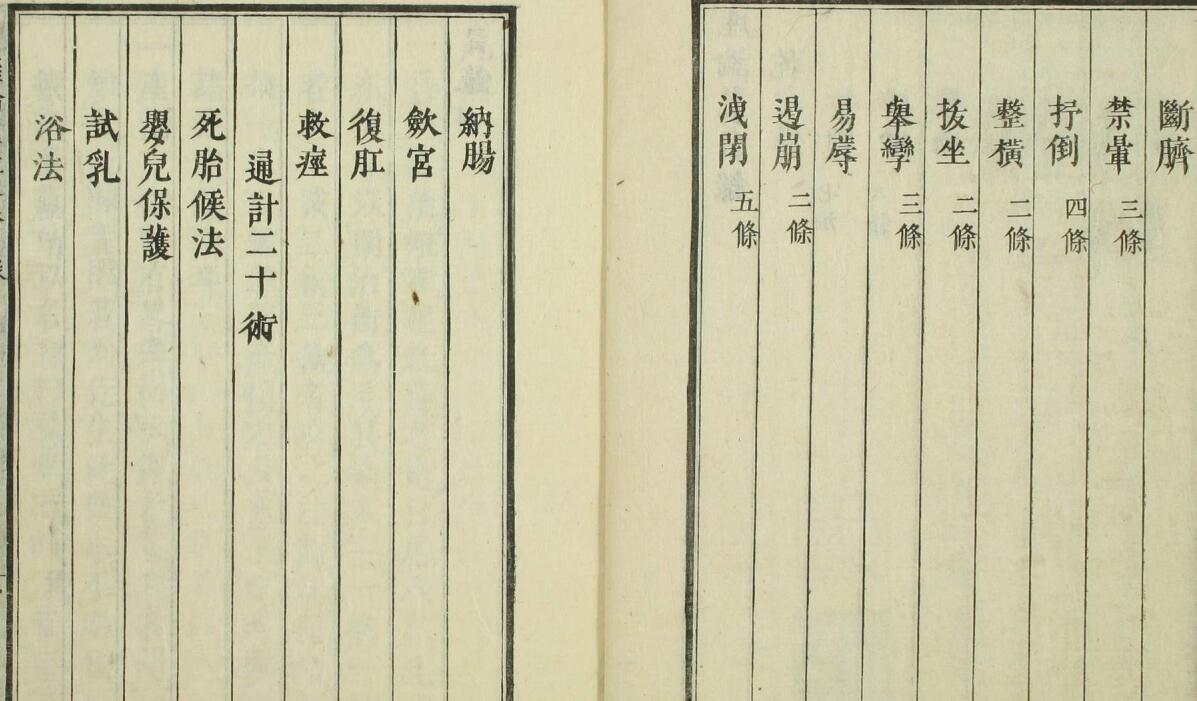 斷臍
禁暈 三條
抒倒 四條
整橫 二條
拔坐 二條
舉孿 三條
易蓐
遏崩 二條
洩閉 五條
納腸
斂宮
復肛
救痙
通計二十術
死胎候法
嬰兒保護
試乳
浴法